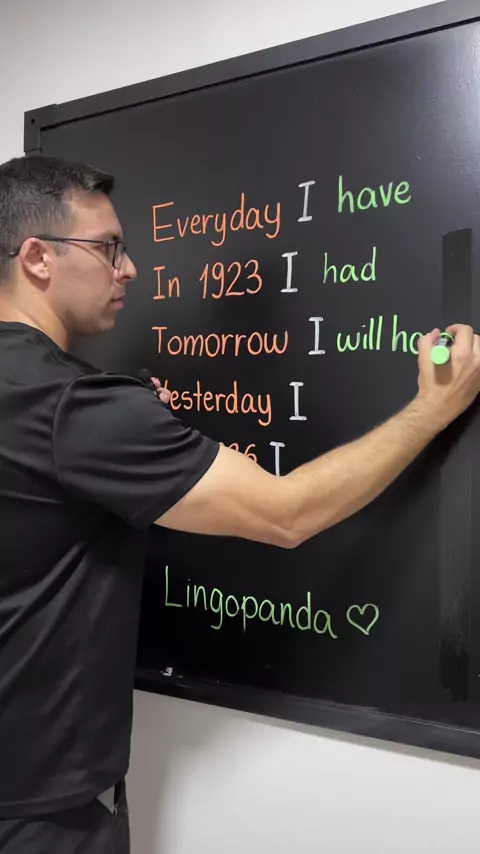 Everyday I have
In 1923 I had
Tomorrow I will
Yesterday I
I
Lingopanda ♡